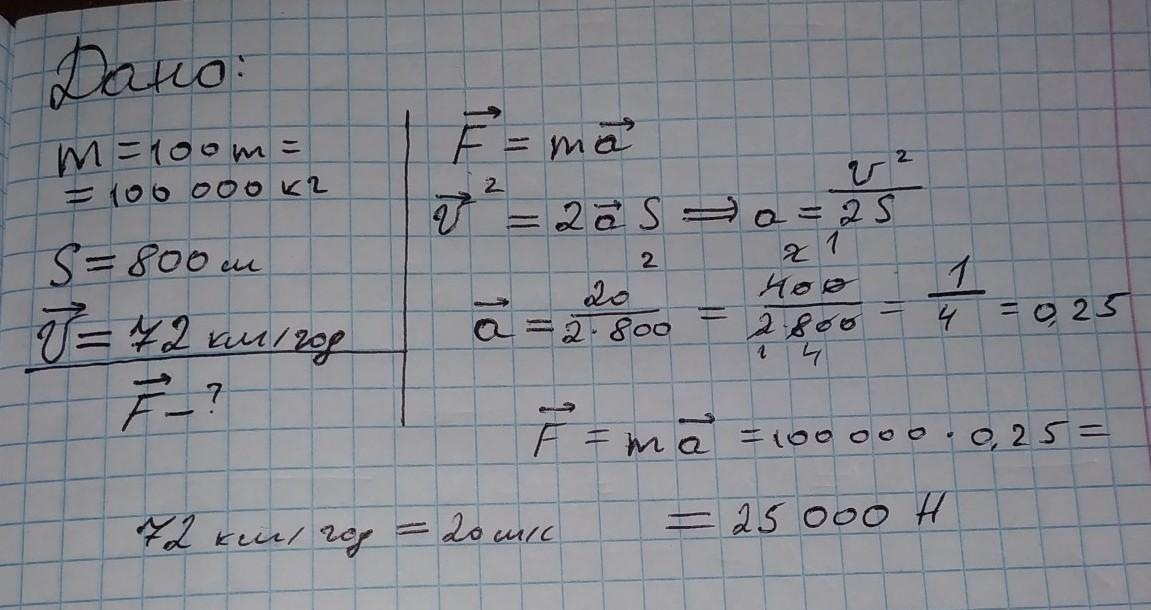 Дано:
m = 100 т =
= 100 000 кг
S = 800 м
v⃗ = 72 км/год
F⃗ – ?
F⃗ = ma⃗
v⃗² = 2a⃗ S ⟹ a = v²/2S
a⃗ = 20²/2·800 = 400/2·800 = 1/4 = 0,25
F⃗ = ma⃗ = 100 000 · 0,25 =
= 25 000 Н
72 км/год = 20 м/с